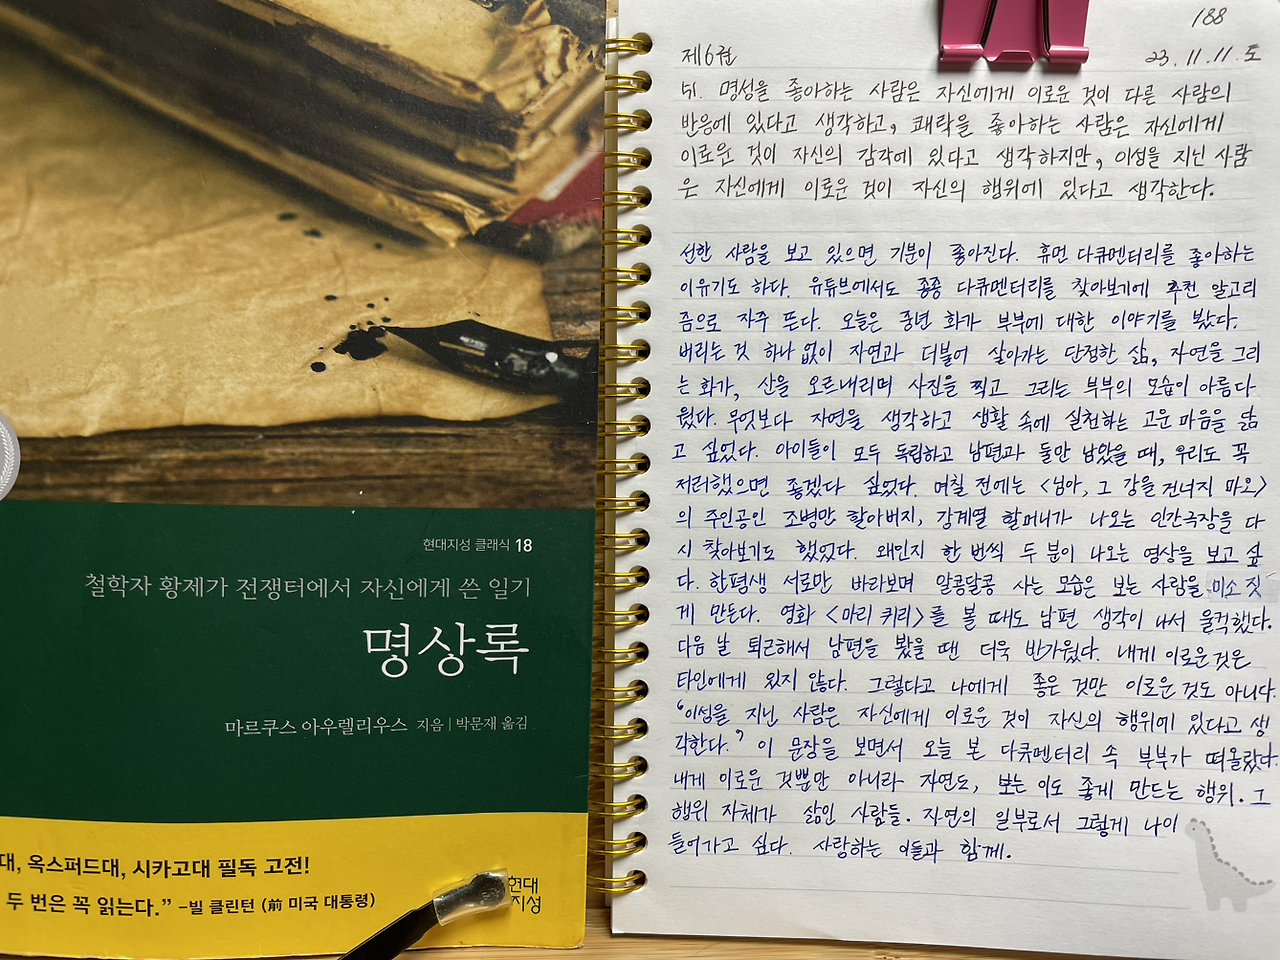 현대지성 클래식 18
철학자 황제가 전쟁터에서 자신에게 쓴 일기
명상록
마르쿠스 아우렐리우스 지음 | 박문재 옮김
대, 옥스퍼드대, 시카고대 필독 고전!
두 번은 꼭 읽는다.” –빌 클린턴 (前 미국 대통령)
현대
지성
188
제6권 23.11.11.토
51. 명성을 좋아하는 사람은 자신에게 이로운 것이 다른 사람의
반응에 있다고 생각하고, 쾌락을 좋아하는 사람은 자신에게
이로운 것이 자신의 감각에 있다고 생각하지만, 이성을 지닌 사람
은 자신에게 이로운 것이 자신의 행위에 있다고 생각한다.
선한 사람을 보고 있으면 기분이 좋아진다. 휴먼 다큐멘터리를 좋아하는
이유기도 하다. 유튜브에서도 종종 다큐멘터리를 찾아보기에 추천 알고리
즘으로 자주 뜬다. 오늘은 중년 화가 부부에 대한 이야기를 봤다.
버리는 것 하나 없이 자연과 더불어 살아가는 단정한 삶, 자연을 그리
는 화가, 산을 오르내리며 사진을 찍고 그리는 부부의 모습이 아름다
웠다. 무엇보다 자연을 생각하고 생활 속에 실천하는 고운 마음을 닮
고 싶었다. 아이들이 모두 독립하고 남편과 둘만 남았을 때, 우리도 꼭
저러했으면 좋겠다 싶었다. 며칠 전에는 <님아, 그 강을 건너지 마오>
의 주인공인 조병만 할아버지, 강계열 할머니가 나오는 인간극장을 다
시 찾아보기도 했었다. 왜인지 한 번씩 두 분이 나오는 영상을 보고 싶
다. 한평생 서로만 바라보며 알콩달콩 사는 모습은 보는 사람을 미소 짓
게 만든다. 영화 <마리 퀴리>를 볼 때도 남편 생각이 나서 울컥했다.
다음 날 퇴근해서 남편을 봤을 땐 더욱 반가웠다. 내게 이로운 것은
타인에게 있지 않다. 그렇다고 나에게 좋은 것만 이로운 것도 아니다.
‘이성을 지닌 사람은 자신에게 이로운 것이 자신의 행위에 있다고 생
각한다.’ 이 문장을 보면서 오늘 본 다큐멘터리 속 부부가 떠올랐다.
내게 이로운 것뿐만 아니라 자연도, 보는 이도 좋게 만드는 행위. 그
행위 자체가 삶인 사람들. 자연의 일부로서 그렇게 나이
들어가고 싶다. 사랑하는 이들과 함께.